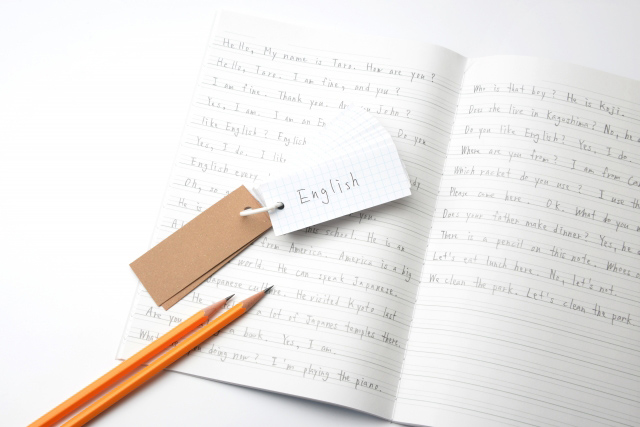 Hello, My name is Taro. How are you?
Hello, Taro. I am fine, and you?
I am fine. Thank you. John?
Yes, I am. I am an Do you
like English? English
Yes, I do. I like
English every
Oh, so
He is
this school. He is an
from America. America is a big
world. He can speak Japanese.
Japanese culture. He visited Kyoto last
He a lot of Japanes temples there.
Are you book. Yes, I am.
What doing now? I'm playing the piano.
English
Who is that key? He is Koji.
Does she live in Kagoshima? No, he
Do you like English? Yes, I do.
Where are you from? I am from Can
Which racket do you use? I use th
Please come here. Ok. What do you
Does your father make dinner? Yes, he
There is a pencil on this note. Wheres
Let's eat lunch here. No, let's not.
We clean the park. Let's clean the park